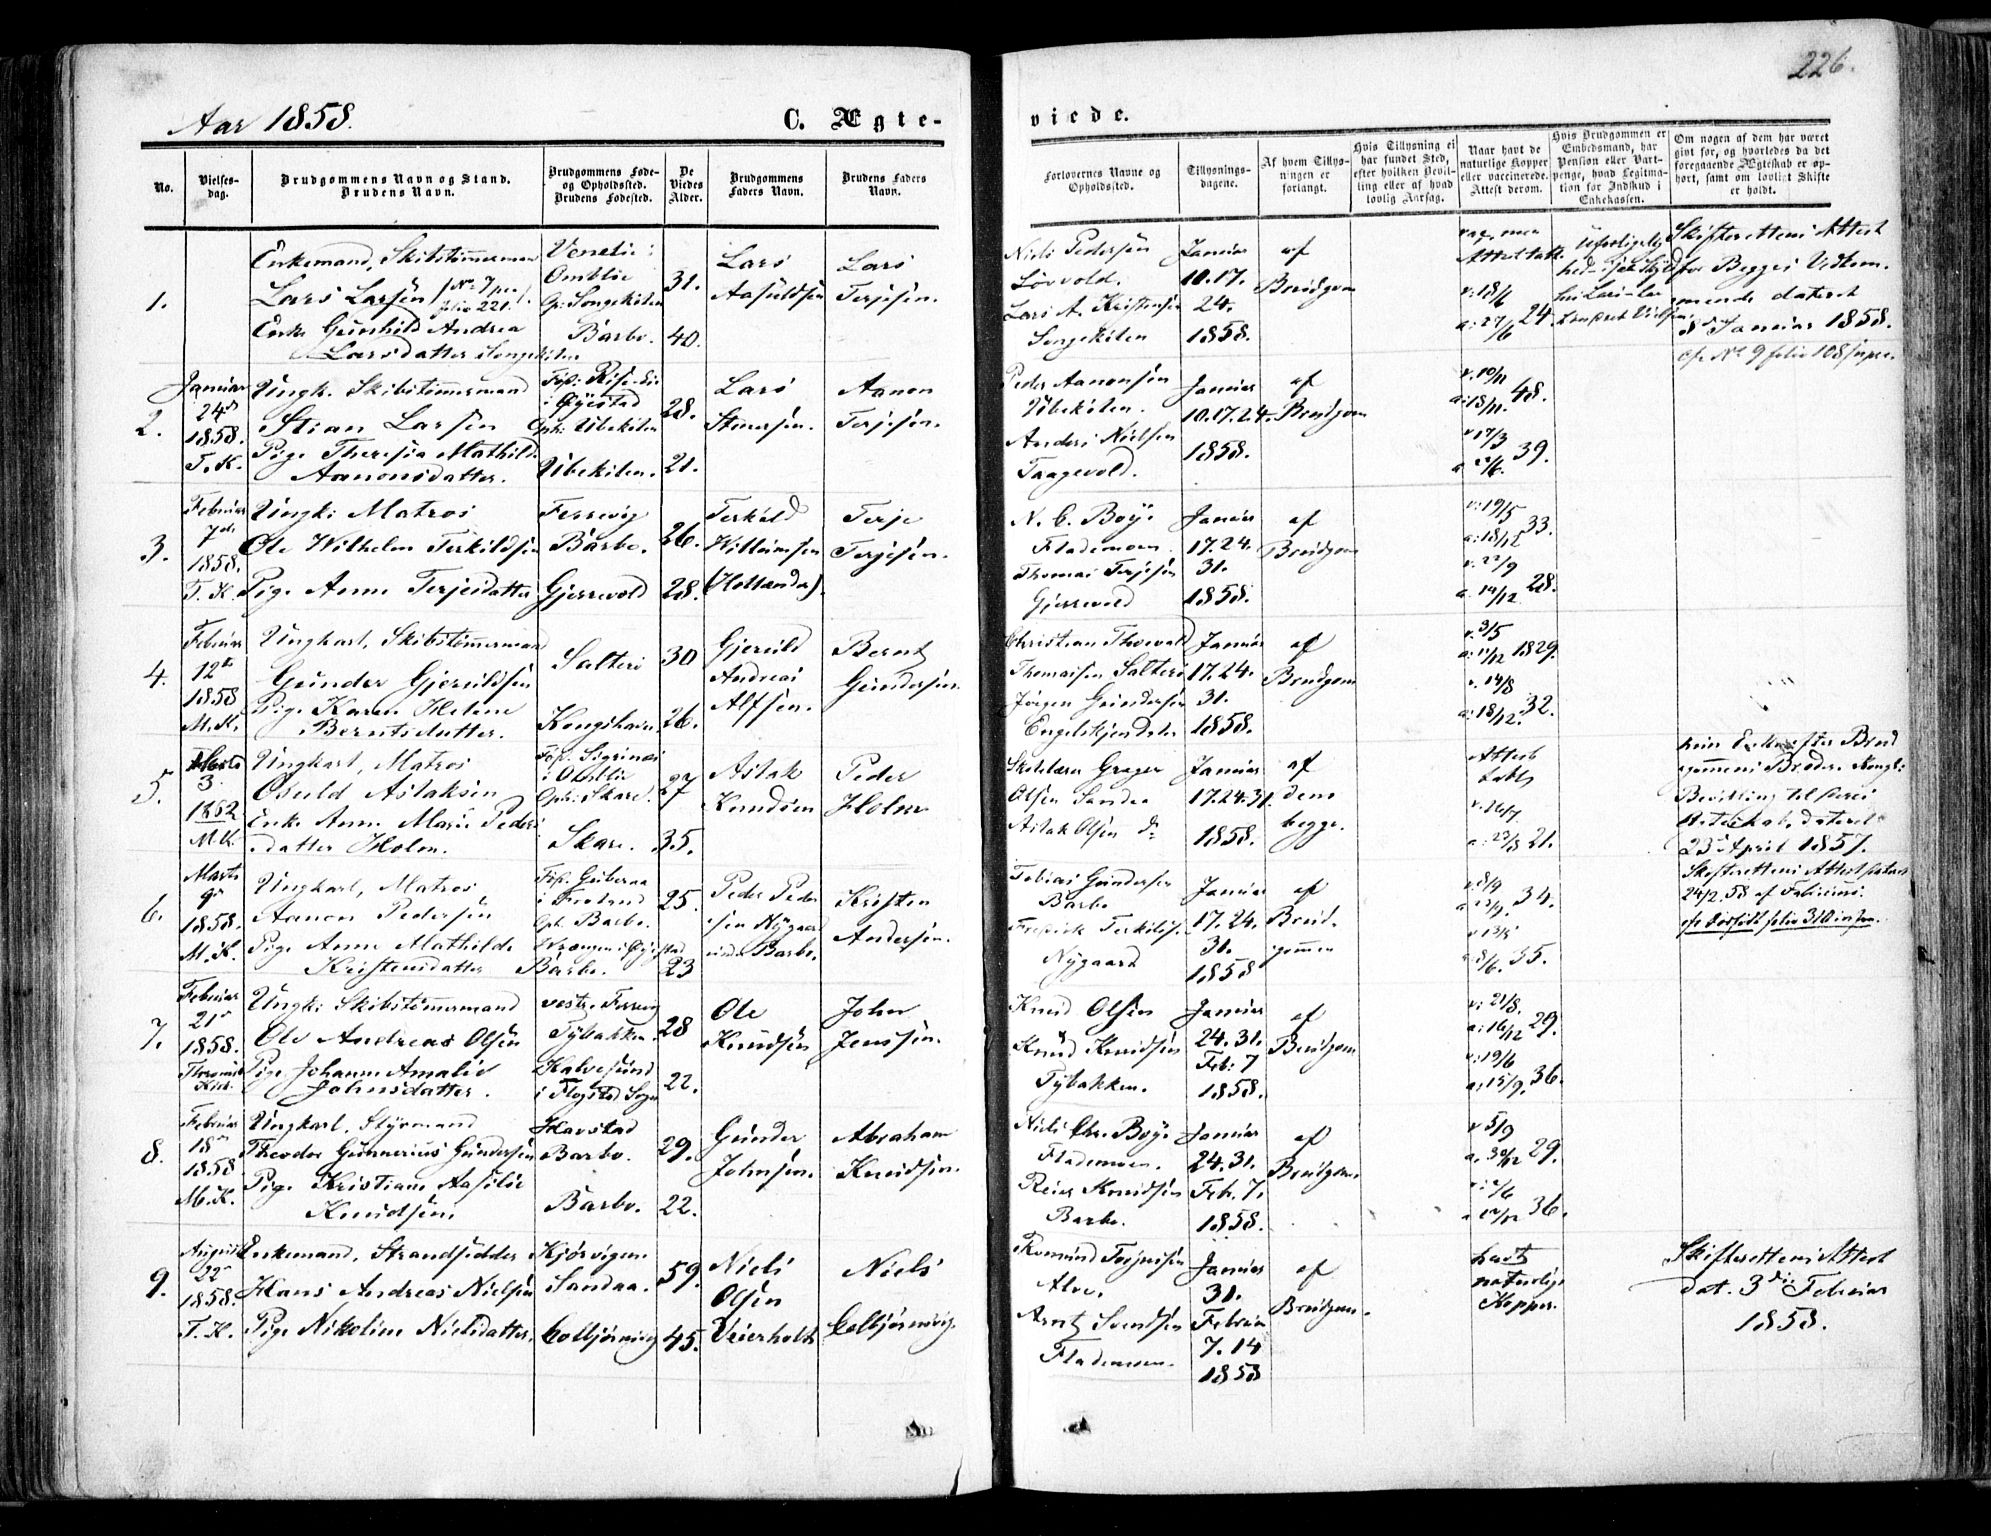 226.
Aar 1858.
C. Ægte-
viede.
No.
Vielses-
dag.
Brudgommens Navn og Stand.
Brudens Navn.
Brudgommens Føde-
og Opholdssted.
Brudens Fødested.
De
Viedes
Alder.
Brudgommens
Faders Navn.
Brudens Faders
Navn.
Forlovernes Navne og
Opholdssted.
Tillysnings-
dagene.
Af hvem Tillys-
ningen er
forlangt.
Hvis Tillysning ei
har fundet Sted,
efter hvilken Bevil-
ling eller af hvad
lovlig Aarsag.
Naar havt de
naturlige Kopper
eller vaccinerede.
Attest derom.
Hvis Brudgommen er
Embedsmand, har
Pension eller Vart-
penge, hvad Legitima-
tion for Indskud i
Enkekassen.
Om nogen af dem har været
givt før, og hvorledes da det
foregaaende Ægteskab er op-
hørt, samt om lovligt Skifte
er holdt.
1.
Enkemand, Skibstømmermand
Lars Larsen
Enke Gunhild Andrea
Larsdatter Songekilen
Omblie
Op: Songekilen
Barbo.
31.
40.
Lars
Aasuldsen
Lars
Terjesen.
Niels Pedersen
Løvvold.
Lars A. Kristensen
Songekilen
Januar
10.17.
24.
1858.
af
Brudgom
v: 18/6
a: 27/6 24.
Skifterettens Attest
for Begges Vedkom-
mende dateret
8de Januar 1858.
cfr No 9 folio 108
2.
Januar
24de
1858.
T. K.
Ungk. Skibstømmermand
Stian Larsen
Pige Theresia Mathilde
Aanonsdatter.
i Øyestad
Oph: Ubekilen
Ubekilen.
28.
21.
Lars
Stenersen.
Aanon
Terjesen.
Peder Aanonsen
Ubekilen.
Anders Nielsen
Taagevold.
Januar
10.17.24.
1858.
af
Brudgom
v. 10/11
a: 18/11. 48.
v 17/3
39.
3.
Februar
7de
1858.
T. K.
Ungk: Matros
Ole Wilhelm Terkildsen
Pige Anne Terjesdatter
Ferrevig
Barbo.
Gjerrevold
26.
28.
Terkild
Willumsen
(Hollender)
Terje
Terjesen.
N. C. Boye
Flademoen.
Thomas Terjesen
Gjerrevold
Januar
17.24.
31.
1858.
af
Brudgom
v: 19/5
a: 18/12 33.
v. 22/9
a. 14/12 28.
4.
Februar
12te
1858
M. K.
Ungkarl, Skibstømmermand
Gunder Gjeruldsen
Pige Karen Helene
Berntsdatter.
Salterø
Kongshavn.
30
26.
Gjeruld
Andreas
Alfsen.
Bernt
Gundersen.
Christian Thorvald
Thomassen Salterø
Jørgen Gundersen
Januar
17.24.
31.
1858.
af
Brudgom
v. 3/5
a: 11/12 1829.
v. 14/8
a: 18/12. 32.
5.
3.
1862
M. K.
Ungkarl, Matros
Osuld Aslaksen
Enke Anne Marie Peders-
datter Holm.
i Omblie
Oph: Skare.
Skare.
27
35.
Aslak
Knudsen
Peder
Holm
Skolelærer Greger
Olsen Sandaa
Aslak Olsen do
Januar
17.24.31.
1858.
af
dem
begge.
Attest
v. 26/7
a: 23/8 21.
hun Enke efter Brud-
gommens Broder. Kongl:
Bevilling til
dateret
23de April 1857.
Skifterettens Attest
24/2 58
folio 310
6.
Marts
9de
1858.
M. K.
Ungkarl, Matros
Aanon Pedersen
Pige Anne Mathilde
Kristensdatter
i Froland
Oph. Barbo.
Vrængen i Øyestad
Barbo.
25.
23
Peder Peder-
sen Nygaard
Barbo.
Kristen
Andersen.
Tobias Gundersen
Barbo
Fredrik Terkildsen
Nygaard
Januar
17.24.
31.
1858
af
Brud-
gommen
v. 8/9
a 23/9. 34.
v 13/5
a 8/6. 35.
7.
Februar
21de
1858.
Ungk: Skibstømmermand
Ole Andreas Olsen
Pige Johanne Amalie
Johnsdatter.
vestre Ferrevig
Tybakken.
Kalvesund
i Flosta Sogn
28
22.
Ole
Knudsen
John
Jenssen.
Knud Olsen
Knud Knudsen
Tybakken.
Januar
24.31.
Feb: 7
1858.
af
Brudgom
v: 21/8.
a: 16/12 29.
v: 19/6
a: 15/9. 36.
8.
Februar
18de
1858
M. K.
Ungkarl. Styrmand
Theodor Gunnerius Gundersen
Pige Kristiane Aasilie
Knudsen.
Havstad
Barbo.
Barbo.
29.
22.
Gunder
Johnsen.
Abraham
Knudsen.
Niels Chr. Boye
Flademoen.
Reier Knudsen
Barbo.
Januar
24.31.
Feb. 7.
1858.
af
Brudgom.
v 5/9
a. 30/12 29.
36.
9.
August
22de
1858.
T. K.
Enkemand, Strandsidder
Hans Andreas Nielsen
Pige Nikoline Nielsdatter.
Kjørvigen
Sandaa.
Colbjørnsvig
59.
45.
Niels
Olsen
Veierholt
Niels
Colbjørnsvig.
Alve.
Arnt Svendsen
Flademoen.
Januar
31.
Februar
7. 14
1858
af
Brudgom.
havt
naturlige
Kopper.
Skifterettens Attest
dat. 3die Februar
1858.